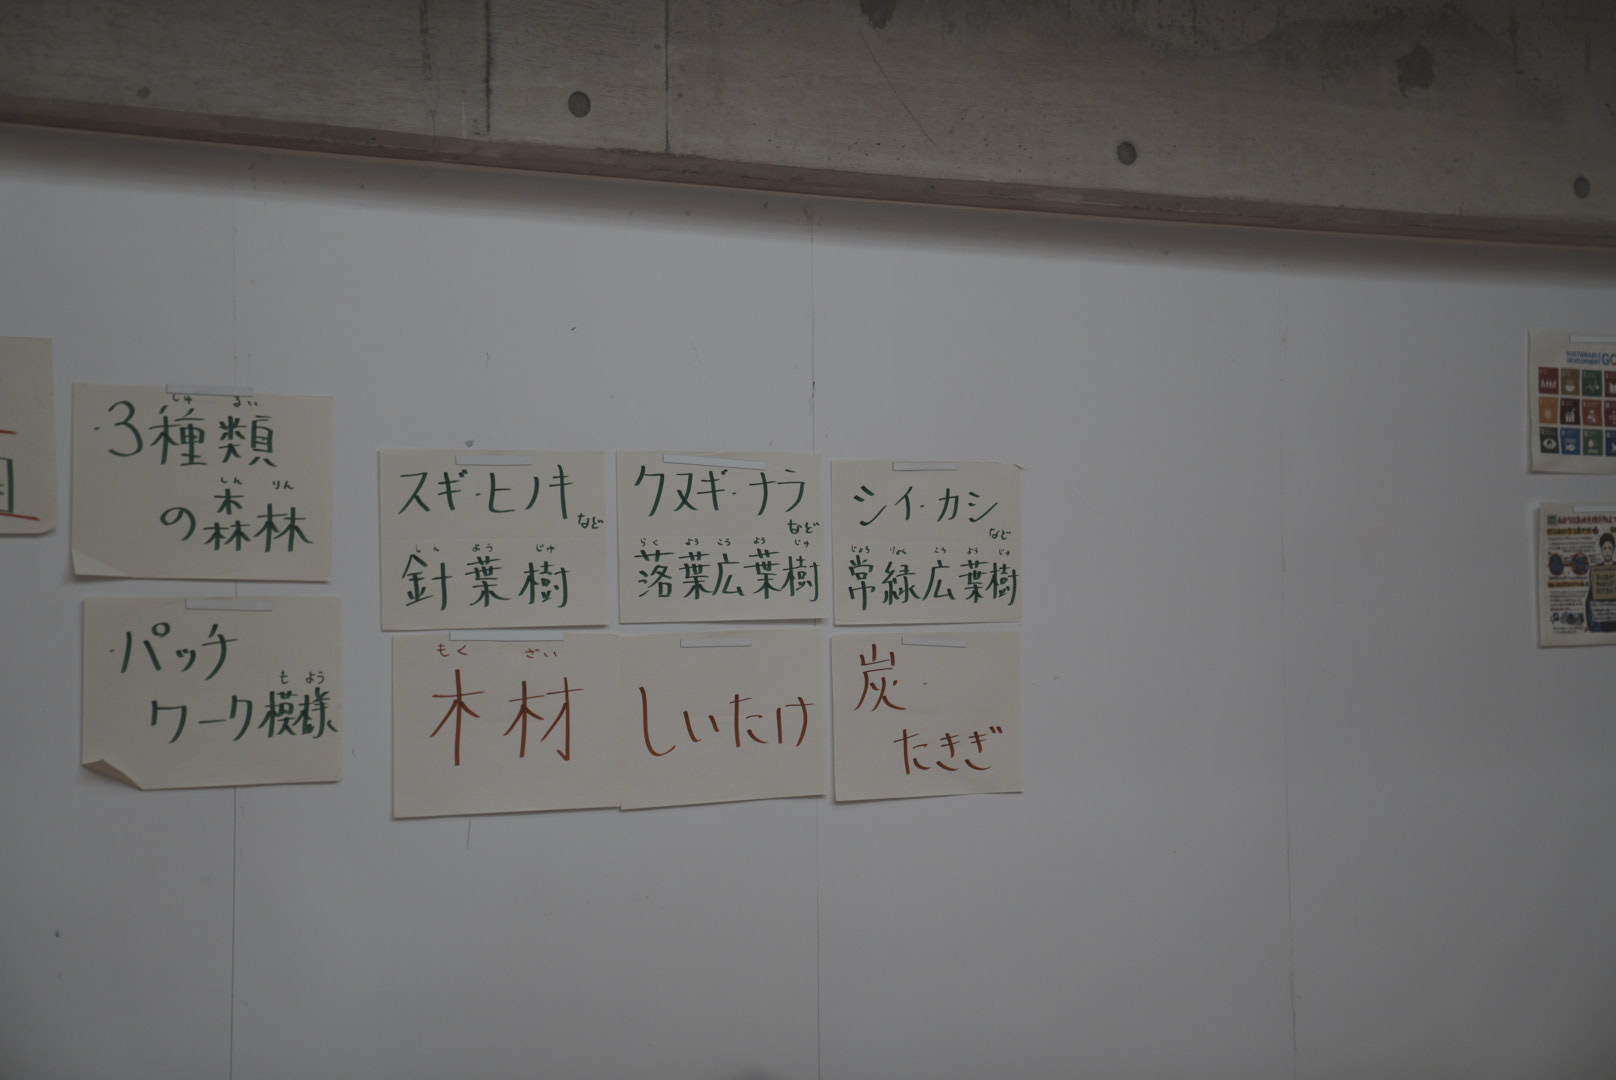 ・3種類
しゅ るい
の森林
しん りん
・パッチ
ワーク模様
も よう
スギ・ヒノキ
など
しん よう じゅ
針葉樹
クヌギ・ナラ
など
らく よう こう よう じゅ
落葉広葉樹
シイ・カシ
など
じょう りょく こう よう じゅ
常緑広葉樹
もく ざい
木材
しいたけ
炭・
たきぎ
SUSTAINABLE
DEVELOPMENT GO